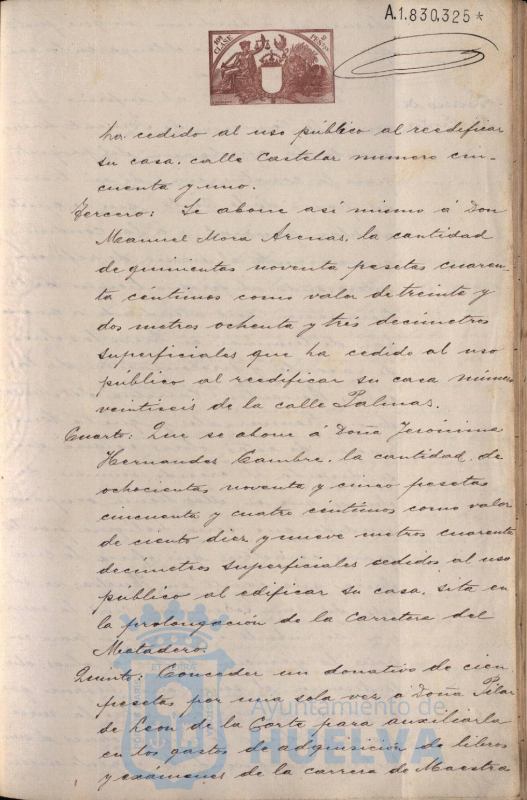 A.1.830.325*
10ª CLASE
PESETAS
ha cedido al uso público al reedificar
su casa, calle Castelar numero cin-
cuenta y uno.
Tercero: Se abone así mismo á Don
Manuel Mora Arenas, la cantidad
de quinientas noventa pesetas cuaren-
ta céntimos como valor de treinta y
dos metros ochenta y tres decímetros
superficiales que ha cedido al uso
público al reedificar su casa número
veintiseis de la calle Palmas.
Cuarto: Que se abone á Doña Jerónima
Hernandez Cambre, la cantidad, de
ochocientas noventa y cinco pesetas
cincuenta y cuatro céntimos como valor
de ciento diez y nueve metros cuarenta
decímetros superficiales sedidos al uso
público al edificar su casa, sita en
la prolongación de la Carretera del
Matadero.
Quinto: Conceder un donativo de cien
pesetas por una sola vez á Doña Pilar
de León de la Corte para auxiliarla
en los gastos de adquisición de libros
y exámenes de la carrera de Maestra
Ayuntamiento de
HUELVA